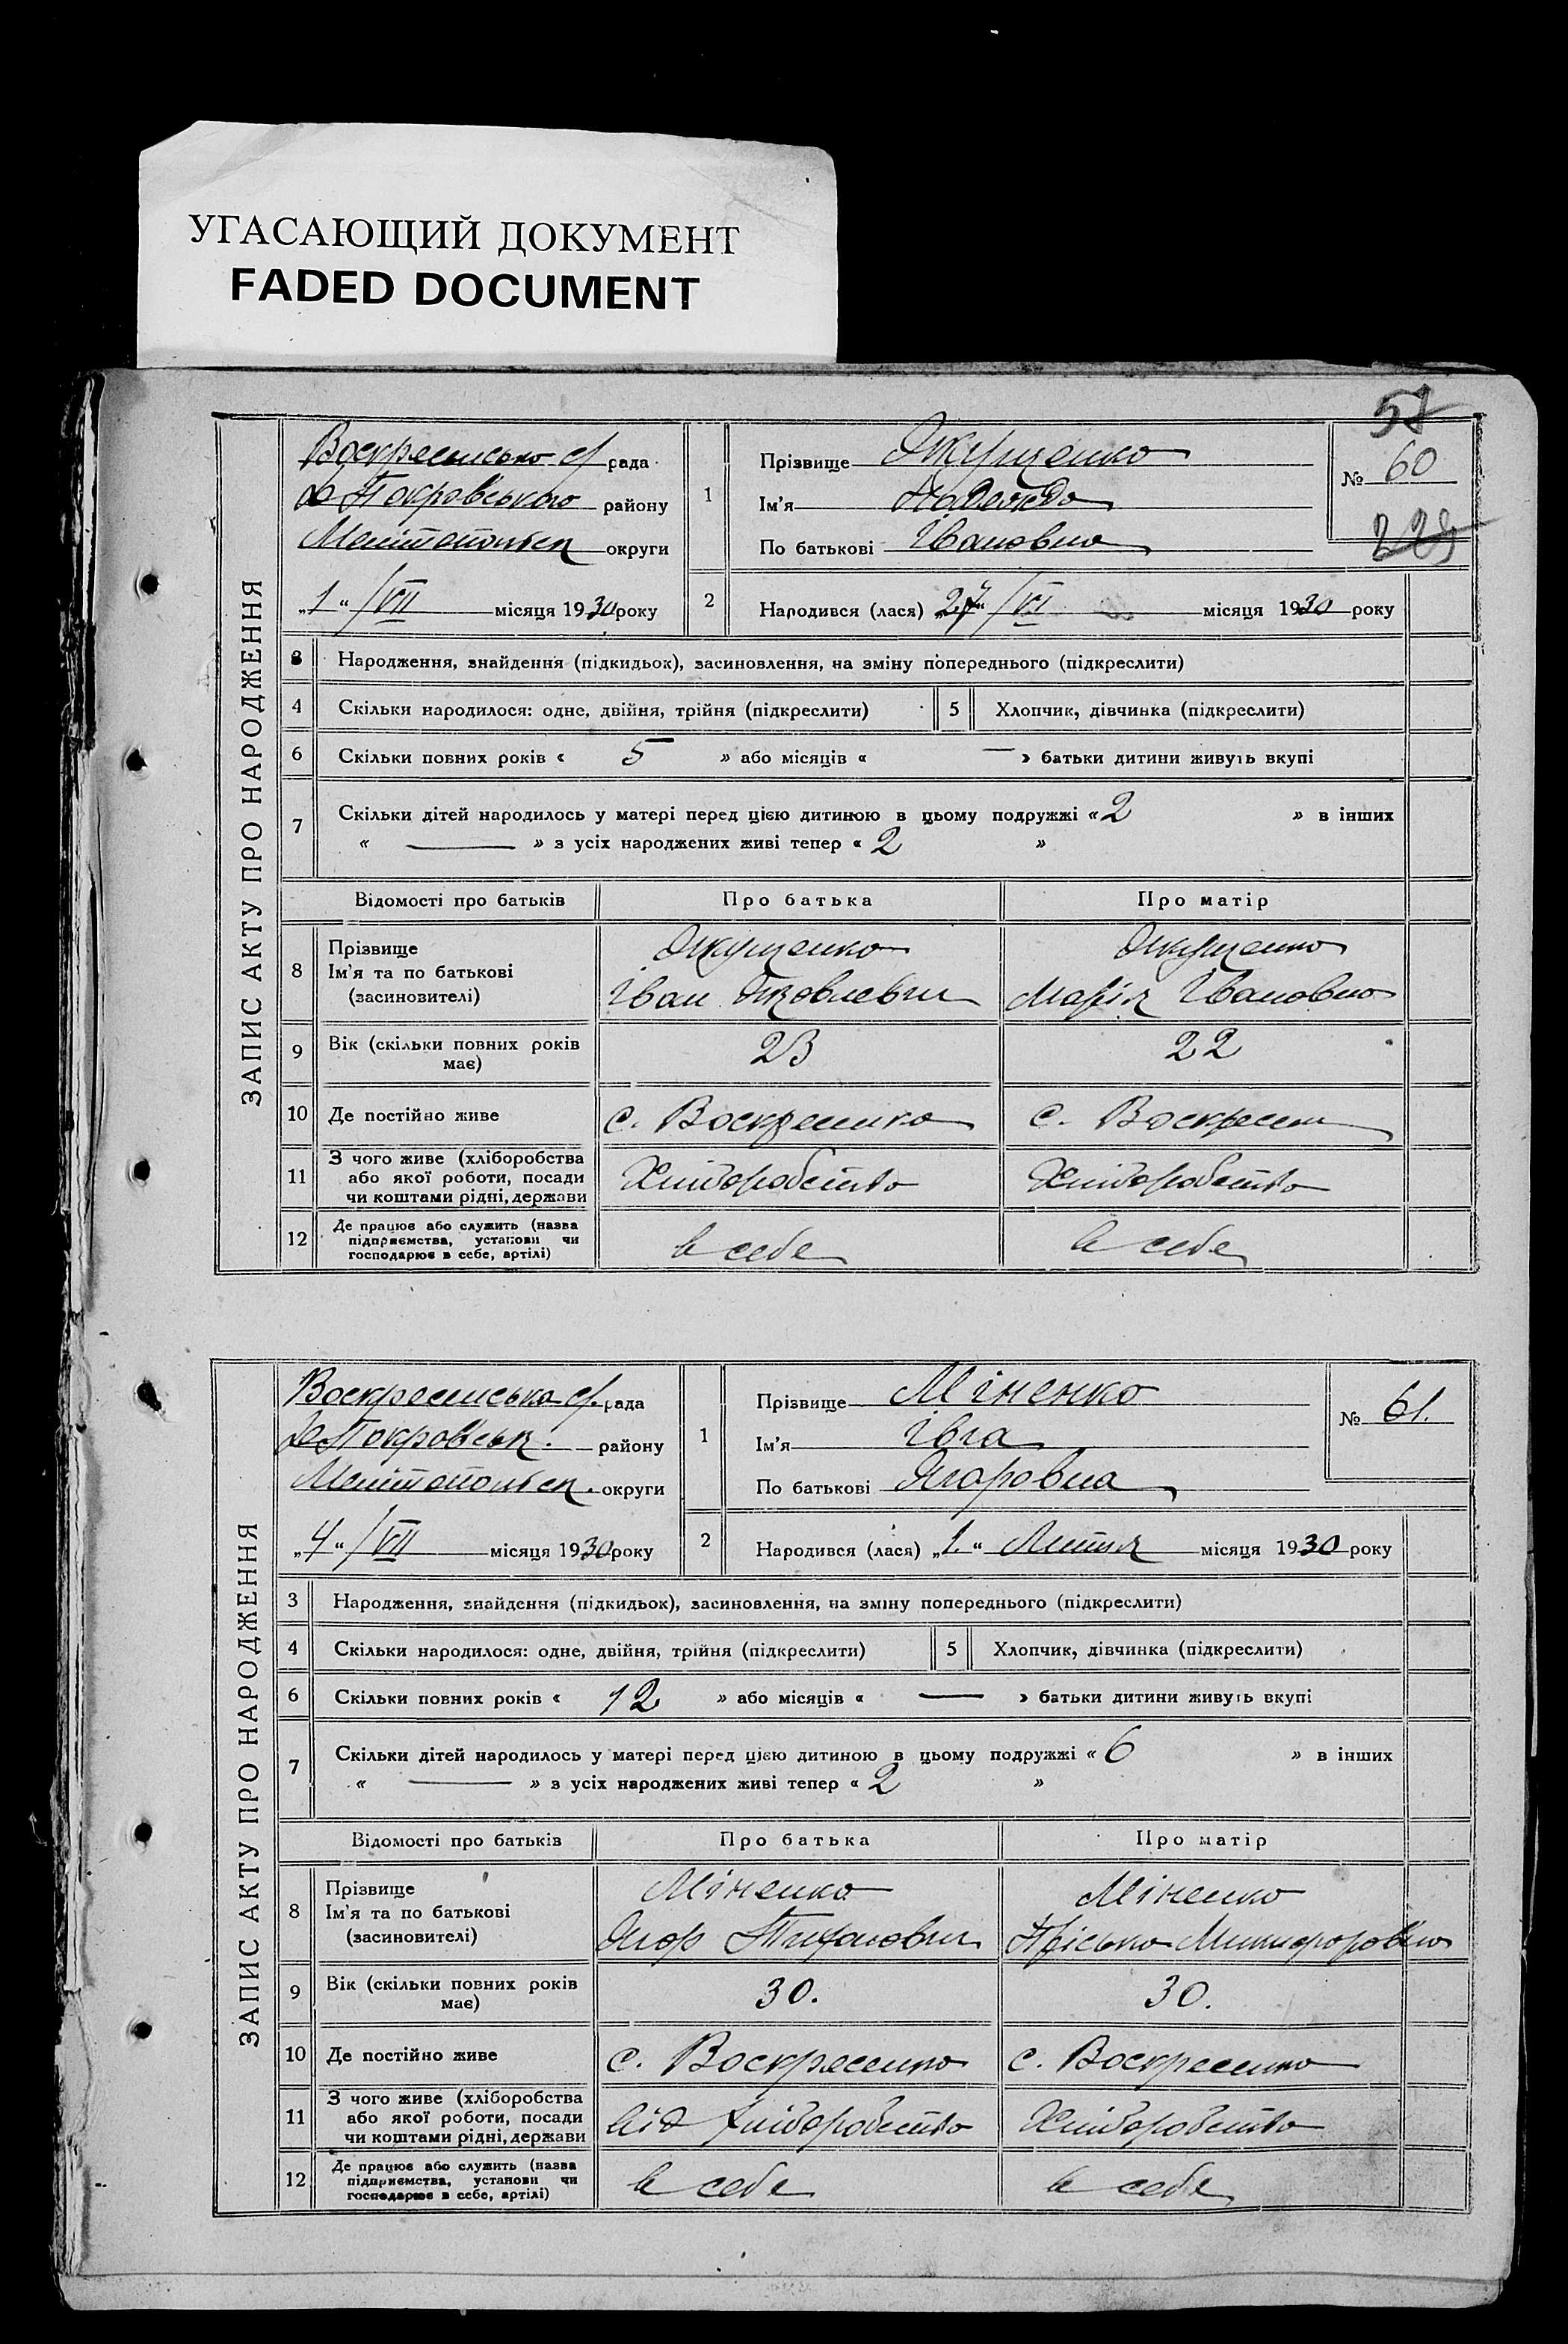 УГАСАЮЩИЙ ДОКУМЕНТ
FADED DOCUMENT
ЗАПИС АКТУ ПРО НАРОДЖЕННЯ
рада
Покровського району
округи
„1“ /VII місяця 1930 року
1
Прізвище
Ім'я Надежда
По батькові Івановна
№ 60
2
Народився (лася) „27“ /VI місяця 1930 року
3 Народження, знайдення (підкидьок), засиновлення, на зміну попереднього (підкреслити)
4 Скільки народилося: одне, двійня, трійня (підкреслити) 5 Хлопчик, дівчинка (підкреслити)
6 Скільки повних років « 5 » або місяців « — » батьки дитини живуть вкупі
7 Скільки дітей народилось у матері перед цією дитиною в цьому подружжі « 2 » в інших
« — » з усіх народжених живі тепер « 2 »
Відомості про батьків Про батька Про матір
8 Прізвище
Ім'я та по батькові Іван Яковлевич Марія Івановна
(засиновителі)
9 Вік (скільки повних років має) 23 22
10 Де постійно живе с. Воскресенка с.
11 З чого живе (хліборобства або якої роботи, посади чи коштами рідні, держави Хліборобство Хліборобство
12 Де працює або служить (назва підприємства, установи чи господарює в себе, артілі) в себе в себе
ЗАПИС АКТУ ПРО НАРОДЖЕННЯ
Воскресенська с/. рада
Покровськ. району
округи
„4“ /VII місяця 1930 року
1
Прізвище Міненко
Ім'я Івга
По батькові Ягоровна
№ 61.
2
Народився (лася) „1.“ Липня місяця 1930 року
3 Народження, знайдення (підкидьок), засиновлення, на зміну попереднього (підкреслити)
4 Скільки народилося: одне, двійня, трійня (підкреслити) 5 Хлопчик, дівчинка (підкреслити)
6 Скільки повних років « 12 » або місяців « — » батьки дитини живуть вкупі
7 Скільки дітей народилось у матері перед цією дитиною в цьому подружжі « 6 » в інших
« — » з усіх народжених живі тепер « 2 »
Відомості про батьків Про батька Про матір
8 Прізвище Міненко Міненко
Ім'я та по батькові Ягор
(засиновителі)
9 Вік (скільки повних років має) 30. 30.
10 Де постійно живе с. Воскресенка с. Воскресенка
11 З чого живе (хліборобства або якої роботи, посади чи коштами рідні, держави від хліборобство Хліборобство
12 Де працює або служить (назва підприємства, установи чи господарює в себе, артілі) в себе в себе